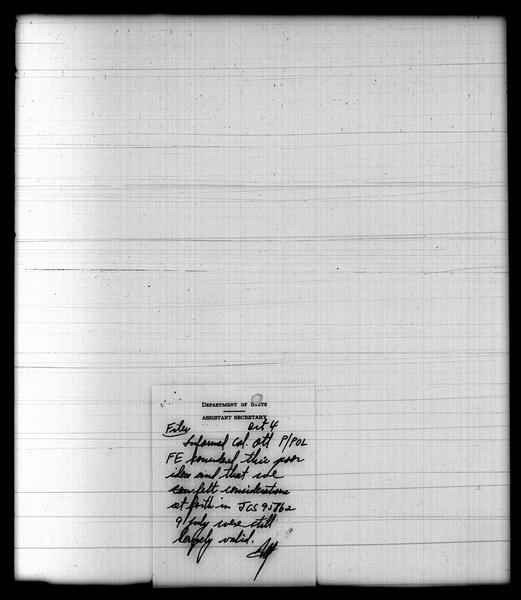 DEPARTMENT OF STATE
ASSISTANT SECRETARY
Files Oct 4
Informed Col. Ott P/POL
FE considered this poor
idea and that we
felt considerations
set forth in JCS 95762
9 July were still
largely valid.